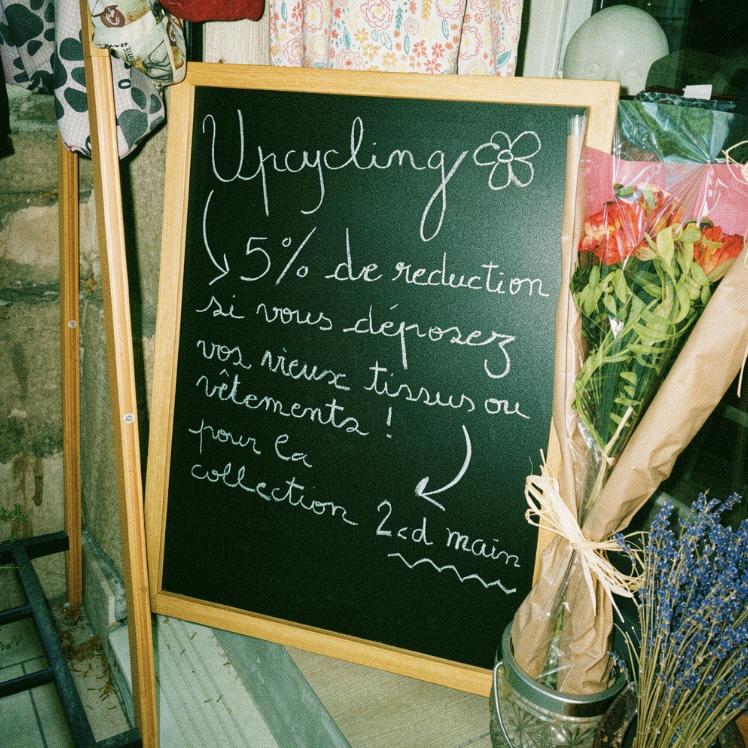 Upcycling
5% de reduction
si vous déposez
vos vieux tissus ou
vêtements !
pour la
collection 2<d main